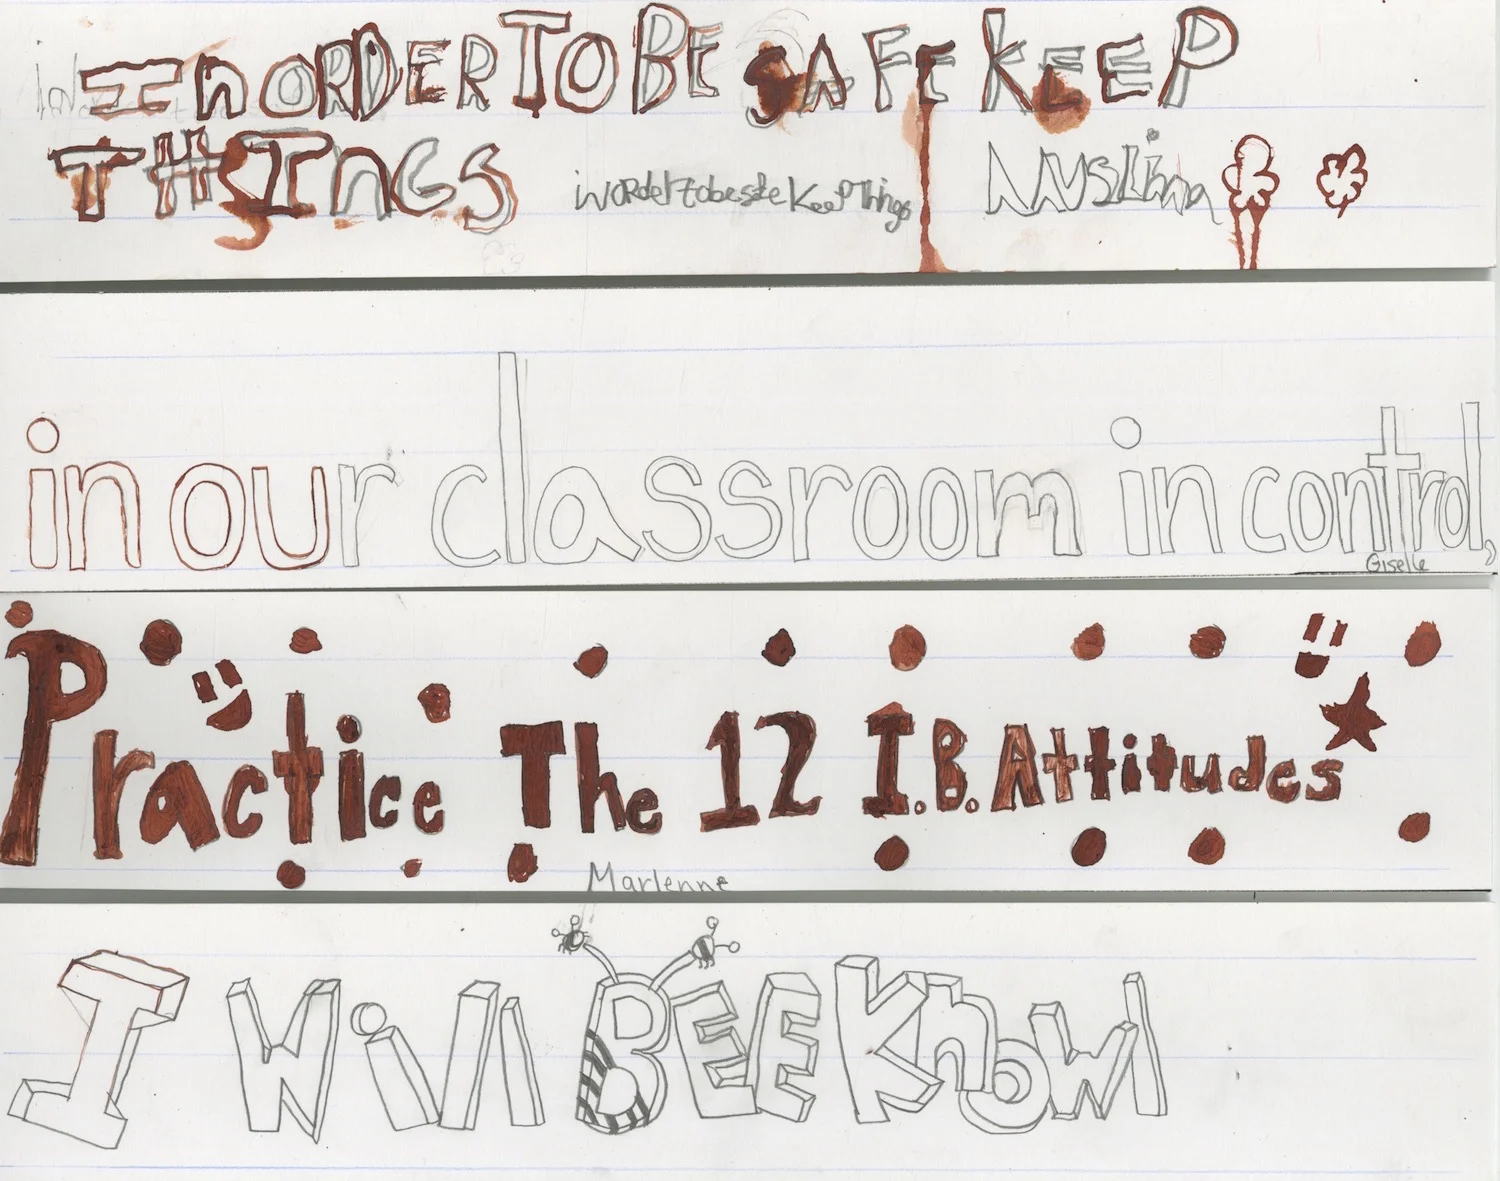 In ORDER TO BE SAFE KEEP
THINGS
inordertobesafe Keep Things
Muslima
in our classroom in control,
Giselle
Practice The 12 I.B. Attitudes
Marlenne
I Will BEE Knowl